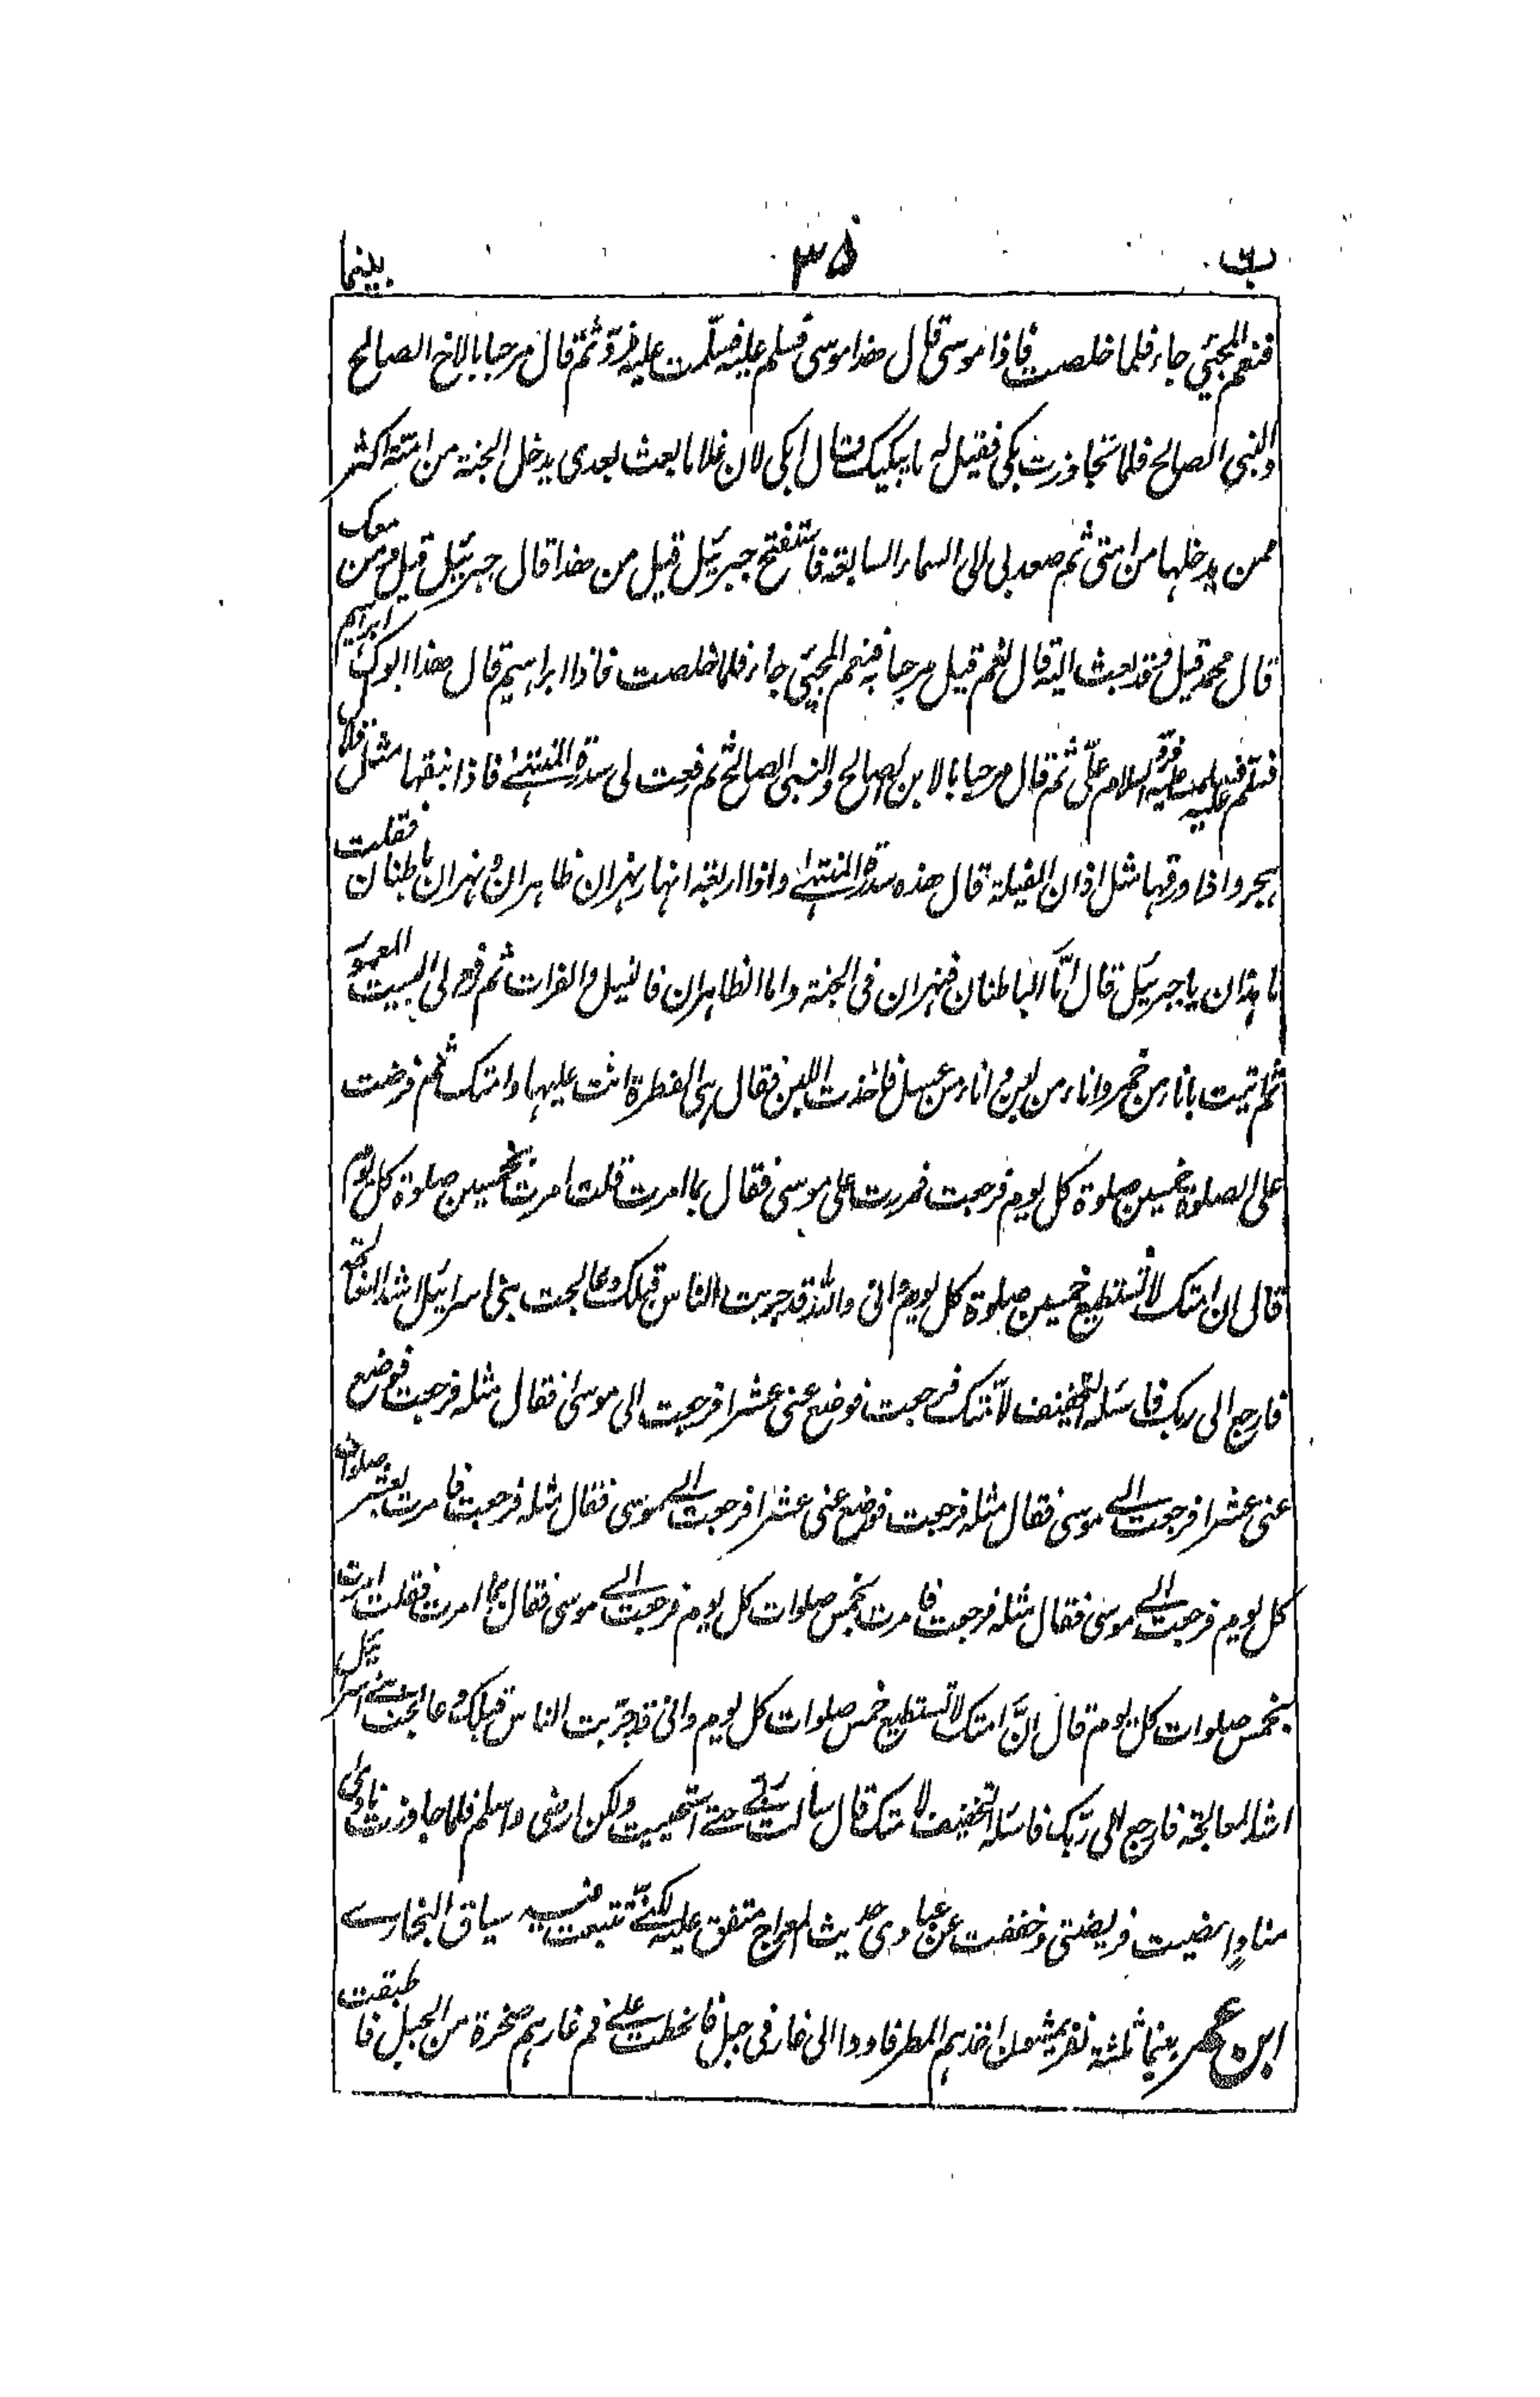 ب ٣٥ بينما
فنعم المجيئ جاء فلما خلصت فاذا موسى قال هذا موسى فسلم عليه فسلمت عليه فردّ ثم قال مرحبا بالاخ الصالح
والنبي الصالح فلما تجاوزت بكى فقيل له ما يبكيك قال ابكى لان غلاما بعث بعدى يدخل الجنة من امته اكثر
ممن يدخلها من امتى ثم صعد بى الى السماء السابعة فاستفتح جبريئل قيل من هذا قال جبريئل قيل ومن معك
قال محمد قيل وقد بعث اليه قال نعم قيل مرحبا به فنعم المجيئ جاء فلما خلصت فاذا ابراهيم قال هذا ابوك ابراهيم
فسلّم عليه فسلمت عليه فردّ السلام علىّ ثم قال مرحبا بالابن الصالح والنبى الصالح ثم رفعت لى سدرة المنتهىٰ فاذا نبقها مثل قلال
هجر واذا ورقها مثل اذان الفيلة قال هذه سدرة المنتهىٰ واذا اربعة انهار نهران ظاهران ونهران باطنان فقلت
ما هذان يا جبريئل قال امّا الباطنان فنهران فى الجنة واما الظاهران فالنيل والفرات ثم رفع لى البيت المعمور
ثم اتيت باناء من خمر واناء من لبن واناء من عسل فاخذت اللبن فقال هى الفطرة انت عليها وامتك ثم فرضت
على الصلوة خمسين صلوة كل يوم فرجعت فمررت على موسى فقال بما امرت قلت امرت بخمسين صلوة كل يوم
قال ان امتك لا تستطيع خمسين صلوة كل يوم وانى والله قد جربت الناس قبلك وعالجت بنى اسرائيل اشد المعالجة
فارجع الى ربك فاسئله التخفيف لامتك فرجعت فوضع عنى عشرا فرجعت الى موسى فقال مثله فرجعت فوضع
عنى عشرا فرجعت الى موسى فقال مثله فرجعت فوضع عنى عشرا فرجعت الى موسى فقال مثله فرجعت فامرت بعشر صلوات
كل يوم فرجعت الى موسى فقال مثله فرجعت فامرت بخمس صلوات كل يوم فرجعت الى موسى فقال بما امرت فقلت امرت
بخمس صلوات كل يوم قال انّ امتك لا تستطيع خمس صلوات كل يوم وانى قد جرّبت الناس قبلك وعالجت بنى اسرائيل
اشد المعالجة فارجع الى ربّك فاسئله التخفيف لامتك قال سألت ربى حتى استحييت ولكن ارضى واسلم فلما جاوزت نادى
منادٍ امضيت فريضتى وخففت عن عبادى حديث المعراج متفق عليه لكنّى تتبعت فيه سياق البخارى
ابن عمر بينما ثلثة نفر يمشون اخذهم المطر فاووا الى غار فى جبل فانحطت على فم غارهم صخرة من الجبل فاطبقت